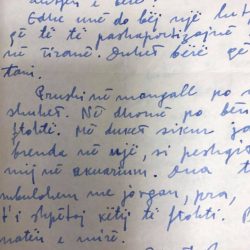 Edhe unë do bëj një lut
që të të pashaportizojnë
në Tiranë. Duhet bërë që
tani.
Prushi në mangall po
shuhet. Në dhomë po bën
ftohtë. Më duket sikur jo
brenda në ujë, si peshqit
mij në akuarium. Dua t
mbulohem me jorgan, pra,
t'i shpëtoj këtij të ftohti. P
natën e mirë.